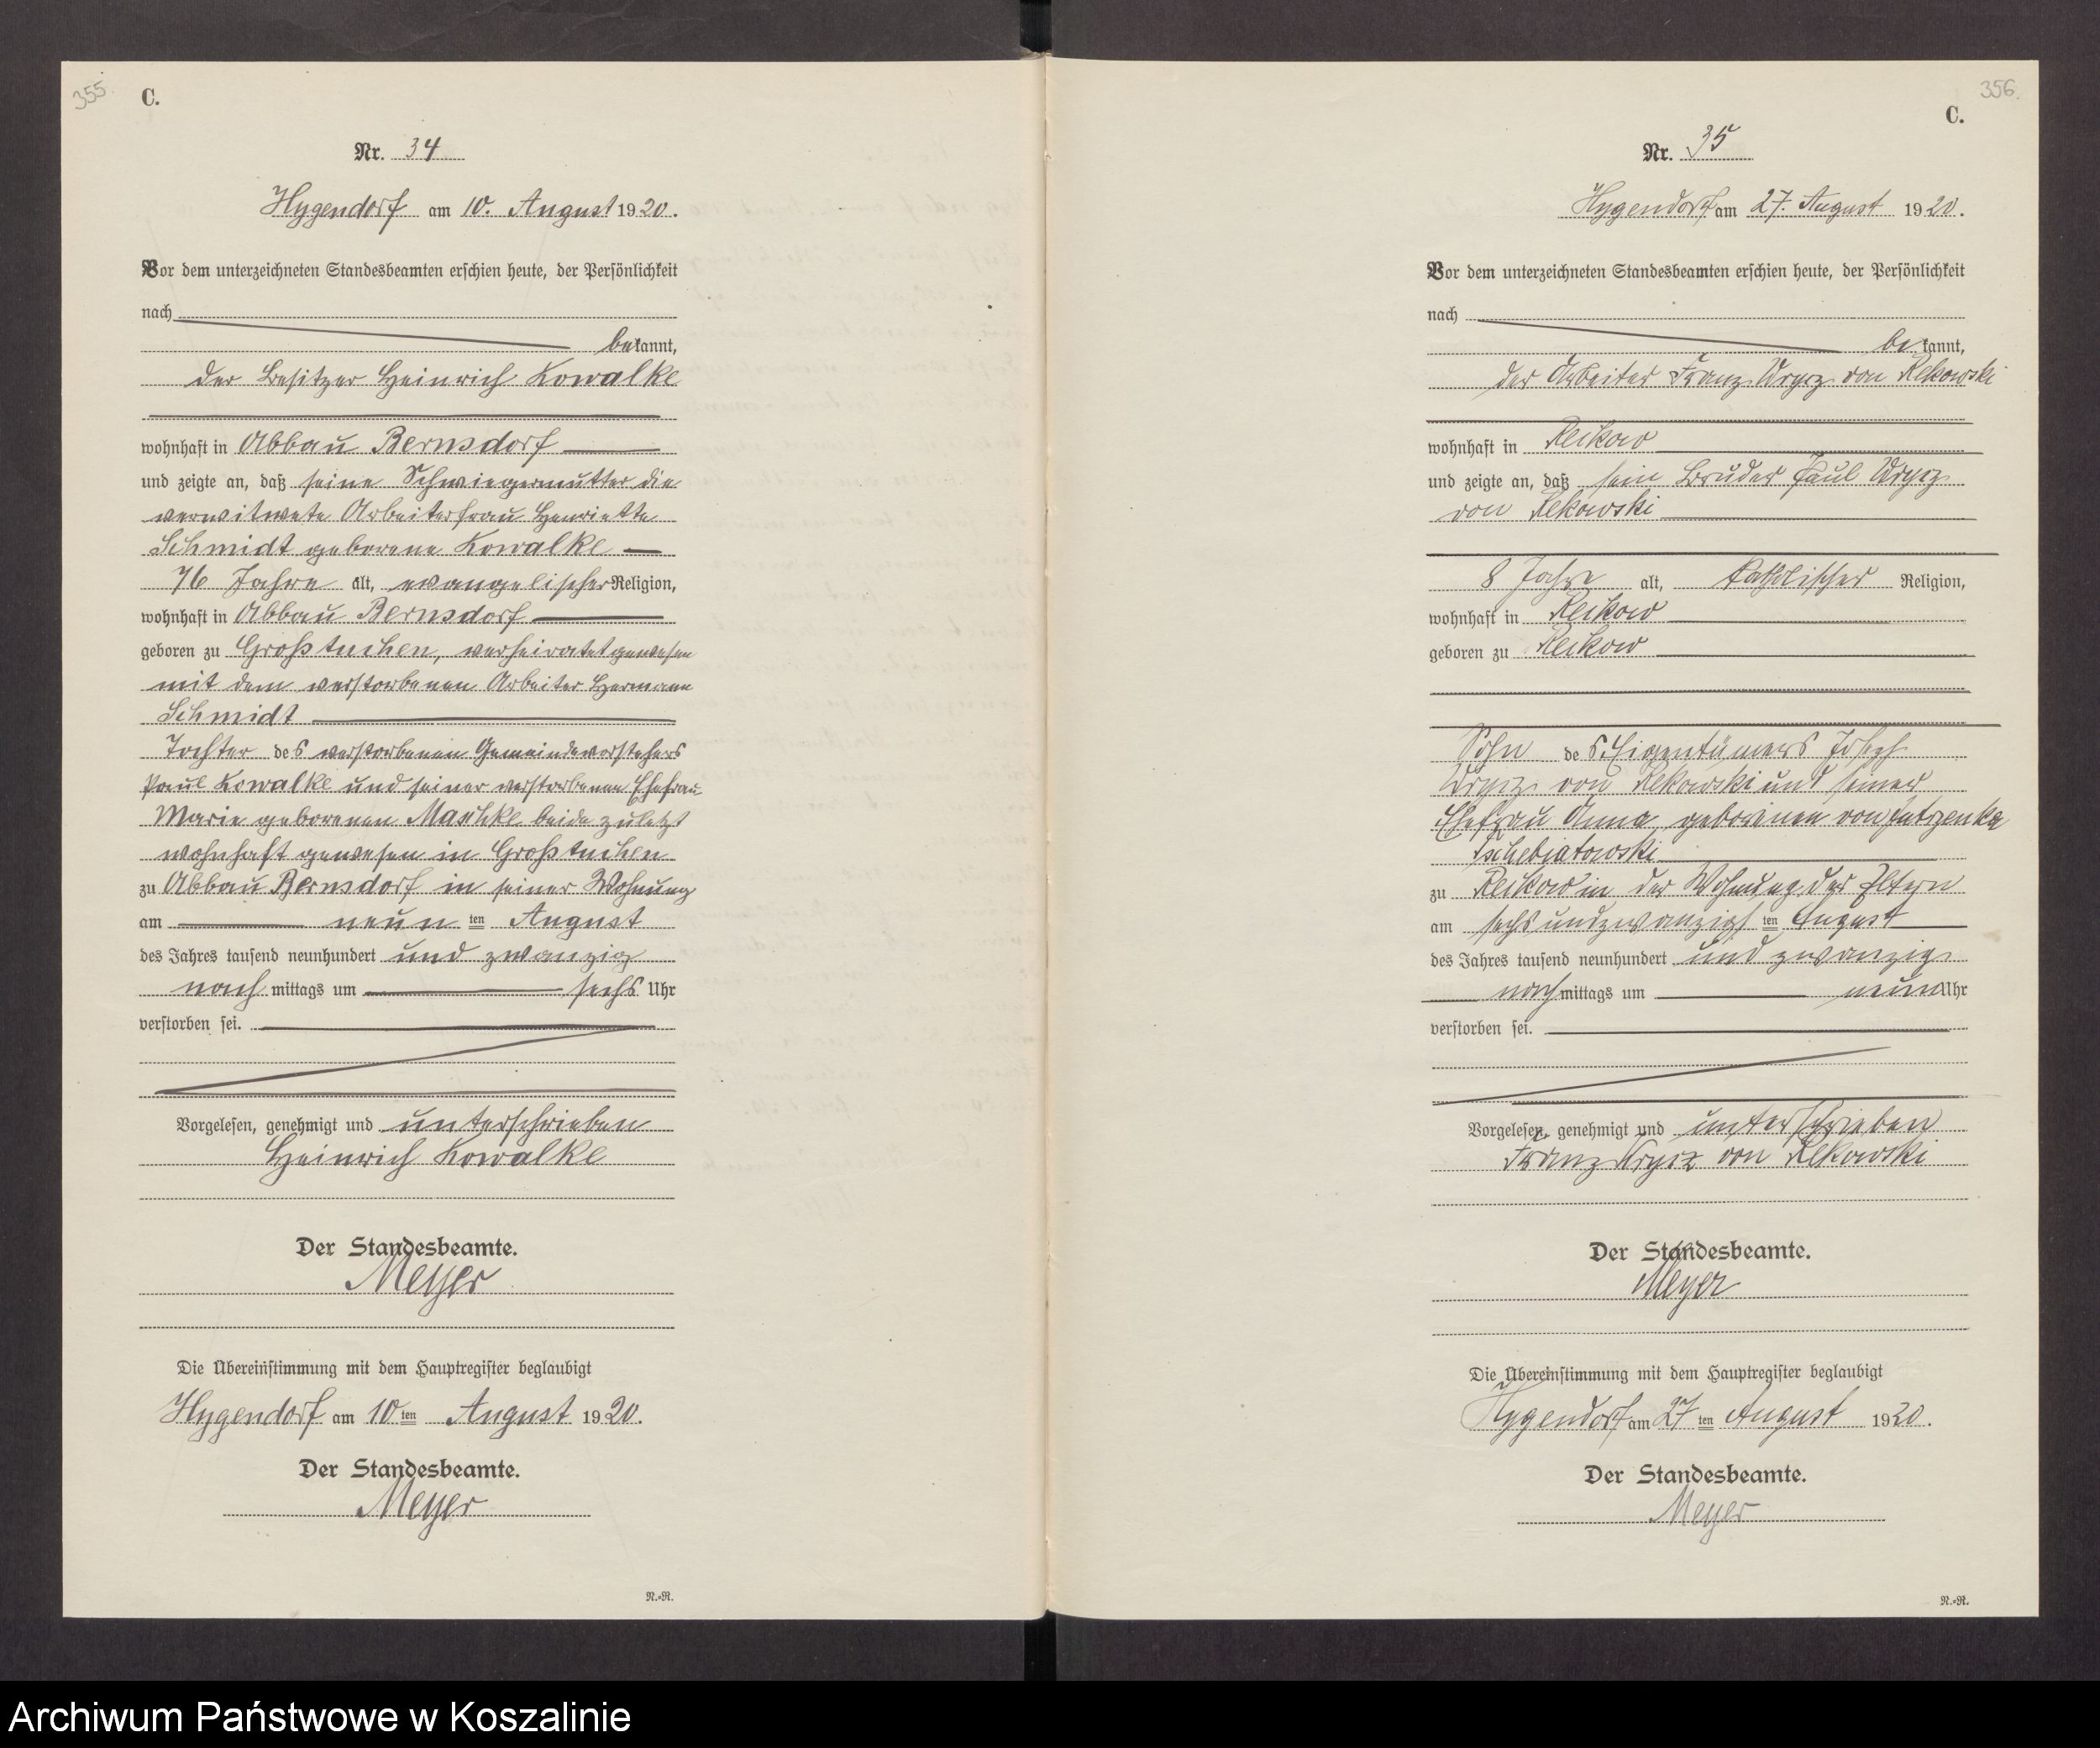 355.
C.
Nr. 34
Hygendorf am 10. August 1920.
Vor dem unterzeichneten Standesbeamten erschien heute, der Persönlichkeit
nach
bekannt,
der Besitzer Heinrich Kowalke
wohnhaft in Abbau Bernsdorf
und zeigte an, daß seine Schwiegermutter die
verwitwete Arbeiterfrau Henriette
Schmidt geborene Kowalke
76 Jahre alt, evangelischer Religion,
wohnhaft in Abbau Bernsdorf
geboren zu Großtuchen, verheiratet gewesen
mit dem verstorbenen Arbeiter Hermann
Schmidt
Tochter des verstorbenen Gemeindevorstehers
Paul Kowalke und seiner verstorbenen Ehefrau
Marie geborenen Maschke beide zuletzt
wohnhaft gewesen in Großtuchen
zu Abbau Bernsdorf in seiner Wohnung
am neun ten August
des Jahres tausend neunhundert und zwanzig
nach mittags um sechs Uhr
verstorben sei.
Vorgelesen, genehmigt und unterschrieben
Heinrich Kowalke
Der Standesbeamte.
Meyer
Die Übereinstimmung mit dem Hauptregister beglaubigt
Hygendorf am 10 ten August 1920.
Der Standesbeamte.
Meyer
N.-R.
356.
C.
Nr. 35
Hygendorf am 27. August 1920.
Vor dem unterzeichneten Standesbeamten erschien heute, der Persönlichkeit
nach
bekannt,
der Arbeiter Franz Wrycz von Rekowski
wohnhaft in Reckow
und zeigte an, daß sein Bruder Paul Wrycz
von Rekowski
8 Jahre alt, katholischer Religion,
wohnhaft in Reckow
geboren zu Reckow
Sohn des Eigentümers Joseph
Wrycz von Rekowski und seiner
Ehefrau Anna geborenen von Jutrzenka
zu Reckow in der Wohnung der Eltern
am sechsundzwanzigs ten August
des Jahres tausend neunhundert und zwanzig
nach mittags um neun Uhr
verstorben sei.
Vorgelesen, genehmigt und unterschrieben
Franz Wrycz von Rekowski
Der Standesbeamte.
Meyer
Die Übereinstimmung mit dem Hauptregister beglaubigt
Hygendorf am 27 ten August 1920.
Der Standesbeamte.
Meyer
N.-R.
Archiwum Państwowe w Koszalinie